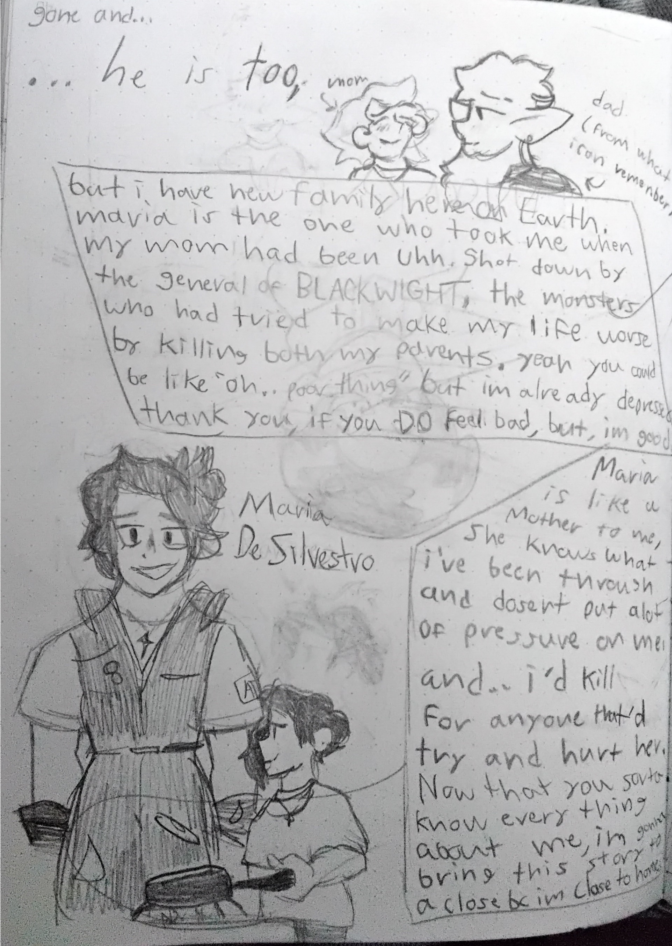 gone and...
... he is too,
mom
dad
(from what
i can remember)
but i have new family here on Earth.
maria is the one who took me when
my mom had been uhh. Shot down by
the general of BLACKWIGHT, the monsters
who had tried to make my life worse
by killing both my parents. yeah you could
be like "oh.. poor thing" but im already depressed
thank you, if you DO feel bad, but, im good
Maria
De Silvestro
A
Maria
is like a
Mother to me,
She knows what
i've been through
and dosent put alot
of pressure on me.
and... i'd kill
For anyone that'd
try and hurt her.
Now that you sorta
know every thing
about me, im gonna
bring this story to
a close bc im close to home